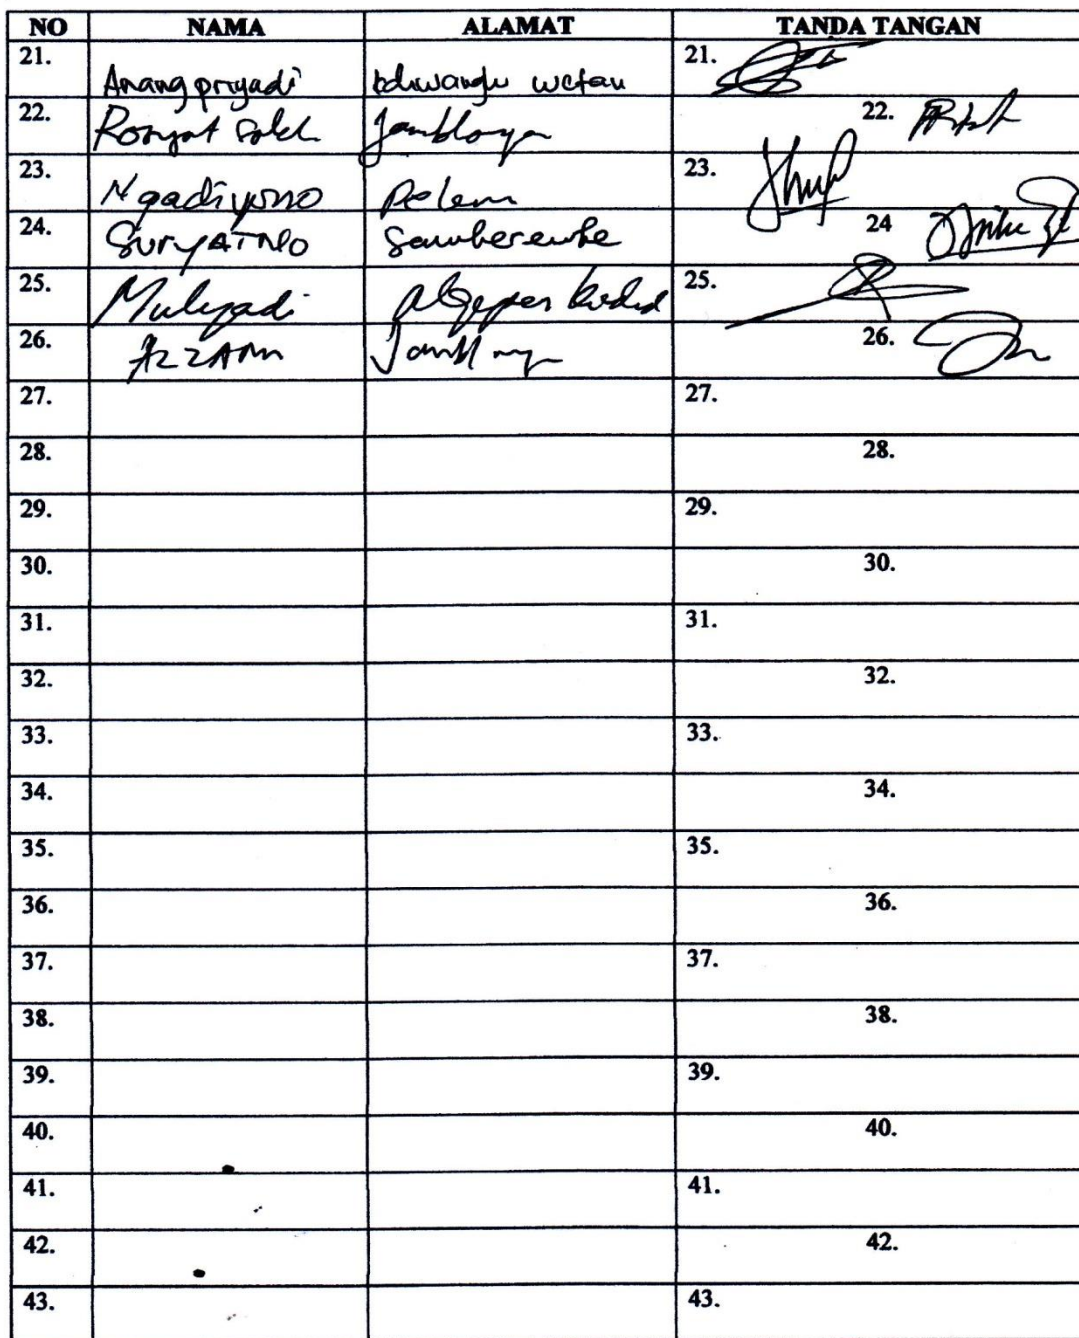 NO NAMA ALAMAT TANDA TANGAN
21. Anang priyadi wetan 21.
22. Rosyat Soleh 22.
23. Ngadiyono Pelem 23.
24. SURYATNO Samberembe 24
25. Mulyadi 25.
26. AZZAM 26.
27. 27.
28. 28.
29. 29.
30. 30.
31. 31.
32. 32.
33. 33.
34. 34.
35. 35.
36. 36.
37. 37.
38. 38.
39. 39.
40. 40.
41. 41.
42. 42.
43. 43.